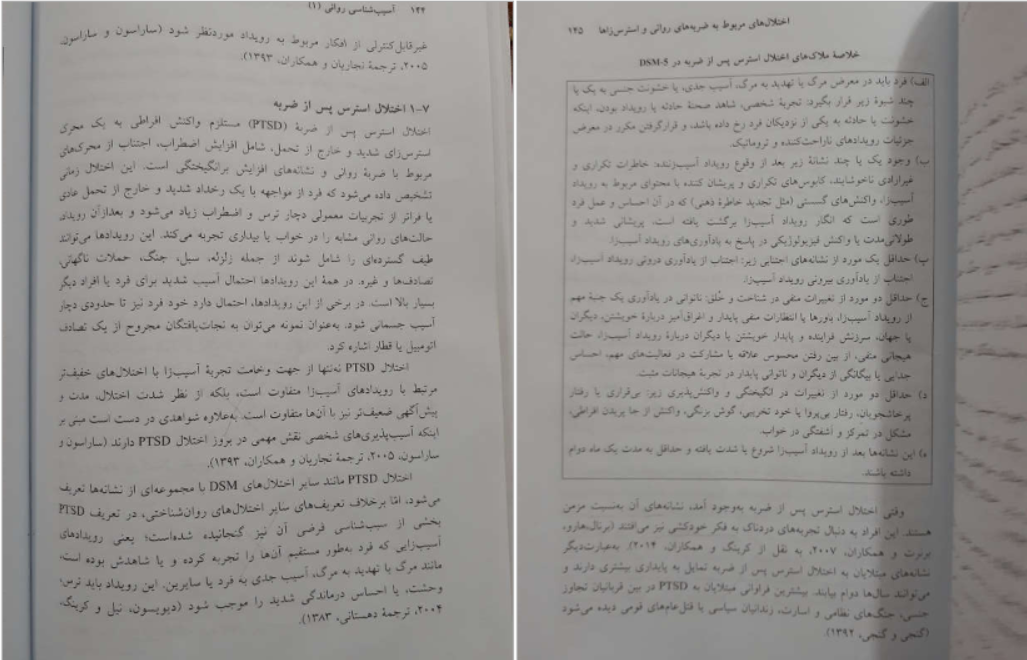 ۱۴۴ آسیب‌شناسی روانی (۱)
غیرقابل‌کنترلی از افکار مربوط به رویداد موردنظر شود (ساراسون و ساراسون،
۲۰۰۵، ترجمة نجاریان و همکاران، ۱۳۹۳).
۷-۱ اختلال استرس پس از ضربه
اختلال استرس پس از ضربة (PTSD) مستلزم واکنش افراطی به یک محرک
استرس‌زای شدید و خارج از تحمل، شامل افزایش اضطراب، اجتناب از محرک‌های
مربوط با ضربة روانی و نشانه‌های افزایش برانگیختگی است. این اختلال زمانی
تشخیص داده می‌شود که فرد از مواجهه با یک رخداد شدید و خارج از تحمل عادی
یا فراتر از تجربیات معمولی دچار ترس و اضطراب زیاد می‌شود و بعدازآن رویداد،
حالت‌های روانی مشابه را در خواب یا بیداری تجربه می‌کند. این رویدادها می‌توانند
طیف گسترده‌ای را شامل شوند از جمله زلزله، سیل، جنگ، حملات ناگهانی،
تصادف‌ها و غیره. در همة این رویدادها احتمال آسیب شدید برای فرد یا افراد دیگر
بسیار بالا است. در برخی از این رویدادها، احتمال دارد خود فرد نیز تا حدودی دچار
آسیب جسمانی شود. به‌عنوان نمونه می‌توان به نجات‌یافتگان مجروح از یک تصادف
اتومبیل یا قطار اشاره کرد.
اختلال PTSD نه‌تنها از جهت وخامت تجربة آسیب‌زا با اختلال‌های خفیف‌تر
مرتبط با رویدادهای آسیب‌زا متفاوت است، بلکه از نظر شدت اختلال، مدت و
پیش‌آگهی ضعیف‌تر نیز با آن‌ها متفاوت است. به‌علاوه شواهدی در دست است مبنی بر
اینکه آسیب‌پذیری‌های شخصی نقش مهمی در بروز اختلال PTSD دارند (ساراسون و
ساراسون، ۲۰۰۵، ترجمة نجاریان و همکاران، ۱۳۹۳).
اختلال PTSD مانند سایر اختلال‌های DSM با مجموعه‌ای از نشانه‌ها تعریف
می‌شود، امّا برخلاف تعریف‌های سایر اختلال‌های روان‌شناختی، در تعریف PTSD
بخشی از سبب‌شناسی فرضی آن نیز گنجانیده شده‌است؛ یعنی رویدادهای
آسیب‌زایی که فرد به‌طور مستقیم آن‌ها را تجربه کرده و یا شاهدش بوده است،
مانند مرگ یا تهدید به مرگ، آسیب جدی به فرد یا سایرین. این رویداد باید ترس؛
وحشت، یا احساس درماندگی شدید را موجب شود (دیویسون، نیل و کرینگ،
۲۰۰۴، ترجمة دهستانی، ۱۳۸۳).
اختلال‌های مربوط به ضربه‌های روانی و استرس‌زاها ۱۴۵
خلاصة ملاک‌های اختلال استرس پس از ضربه در DSM-5
الف) فرد باید در معرض مرگ یا تهدید به مرگ، آسیب جدی، یا خشونت جنسی به یک یا
چند شیوة زیر قرار بگیرد: تجربة شخصی، شاهد صحنة حادثه یا رویداد بودن، اینکه
خشونت یا حادثه به یکی از نزدیکان فرد رخ داده باشد، و قرارگرفتن مکرر در معرض
جزئیات رویدادهای ناراحت‌کننده و تروماتیک.
ب) وجود یک یا چند نشانة زیر بعد از وقوع رویداد آسیب‌زننده: خاطرات تکراری و
غیرارادی ناخوشایند، کابوس‌های تکراری و پریشان کننده با محتوای مربوط به رویداد
آسیب‌زا، واکنش‌های گسستی (مثل تجدید خاطرة ذهنی) که در آن احساس و عمل فرد
طوری است که انگار رویداد آسیب‌زا برگشت یافته است، پریشانی شدید و
طولانی‌مدت یا واکنش فیزیولوژیکی در پاسخ به یادآوری‌های رویداد آسیب‌زا.
پ) حداقل یک مورد از نشانه‌های اجتنابی زیر: اجتناب از یادآوری درونی رویداد آسیب‌زا،
اجتناب از یادآوری بیرونی رویداد آسیب‌زا.
ج) حداقل دو مورد از تغییرات منفی در شناخت و خُلق: ناتوانی در یادآوری یک جنبة مهم
از رویداد آسیب‌زا، باورها یا انتظارات منفی پایدار و اغراق‌آمیز دربارة خویشتن، دیگران
یا جهان، سرزنش فزاینده و پایدار خویشتن یا دیگران دربارة رویداد آسیب‌زا، حالت
هیجانی منفی، از بین رفتن محسوس علاقه یا مشارکت در فعالیت‌های مهم، احساس
جدایی یا بیگانگی از دیگران و ناتوانی پایدار در تجربة هیجانات مثبت.
د) حداقل دو مورد از تغییرات در انگیختگی و واکنش‌پذیری زیر: بی‌قراری یا رفتار
پرخاشجویان، رفتار بی‌پروا یا خود تخریبی، گوش بزنگی، واکنش از جا پریدن افراطی،
مشکل در تمرکز و آشفتگی در خواب.
ه) این نشانه‌ها بعد از رویداد آسیب‌زا شروع یا شدت یافته و حداقل به مدت یک ماه دوام
داشته باشند.
وقتی اختلال استرس پس از ضربه به‌وجود آمد، نشانه‌های آن به‌نسبت مزمن
هستند. این افراد به دنبال تجربه‌های دردناک به فکر خودکشی نیز می‌افتند (برنال‌هارو،
بربرت و همکاران، ۲۰۰۷، به نقل از کرینگ و همکاران، ۲۰۱۴). به‌عبارت‌دیگر
نشانه‌های مبتلایان به اختلال استرس پس از ضربه تمایل به پایداری بیشتری دارند و
می‌توانند سال‌ها دوام بیابند. بیشترین فراوانی مبتلایان به PTSD در بین قربانیان تجاوز
جنسی، جنگ‌های نظامی و اسارت، زندانیان سیاسی یا قتل‌عام‌های قومی دیده می‌شود
(گنجی و گنجی، ۱۳۹۲).